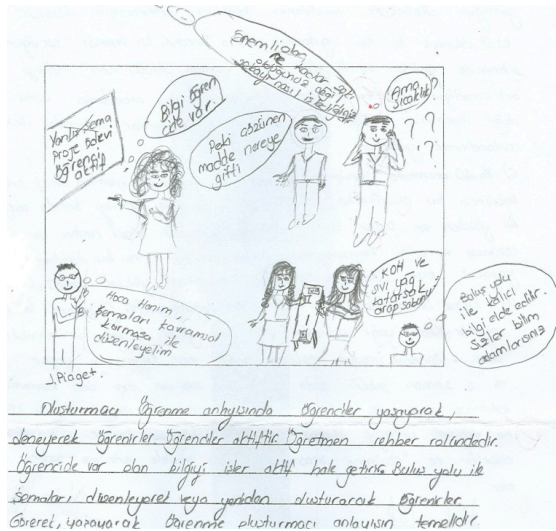 Önemli olan
ne kadar zeki
olduğunuz değil
zekayı nasıl işlettiğiniz
Ama
sıcaklık
?
? ?
?
Bilgi öğren
cide var.
Yanlış şema
Proje ödevi
Öğrenci
aktif
Peki çözünen
madde nereye
gitti
Hoca Hanım,
şemaları kavramsal
karmaşa ile
düzenleyelim
KOH ve
sıvı yağ
katarsak
arap sabunu
Buluş yolu
ile kalıcı
bilgi elde edilir.
Sizler bilim
adamlarısınız
J.Piaget.
Oluşturmacı Öğrenme anlayışında öğrenciler yaşayarak,
deneyerek öğrenirler. Öğrenciler aktiftir. Öğretmen rehber rolündedir.
Öğrencide var olan bilgiyi işler aktif hale getirir. Buluş yolu ile
şemaları düzenleyerek veya yeniden oluşturarak öğrenirler
Görerek, yaşayarak öğrenme oluşturmacı anlayışın temelidir.